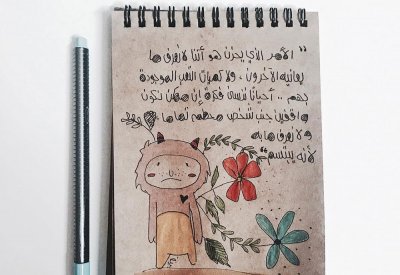 " الأمر الذي يحزن هو أننا لا نعرف ما
يعانيه الآخرون ، ولا كميات التعب الموجودة
بهم .. أحياناً ننسى فكرة إن ممكن نكون
واقفين جنب شخص محطم تماما
ولا نعرف ما به
لأنه يبتسم "